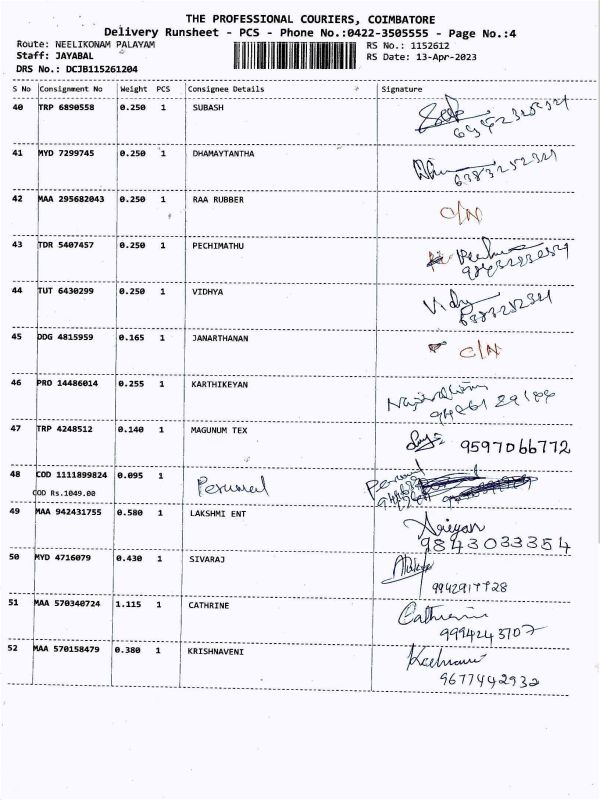 THE PROFESSIONAL COURIERS, COIMBATORE
Delivery Runsheet - PCS - Phone No.:0422-3505555 - Page No.:4
Route: NEELIKONAM PALAYAM RS No.: 1152612
Staff: JAYABAL RS Date: 13-Apr-2023
DRS No.: DCJB115261204
S No Consignment No Weight PCS Consignee Details Signature
40 TRP 6890558 0.250 1 SUBASH
41 MYD 7299745 0.250 1 DHAMAYTANTHA
6383252321
42 MAA 295682043 0.250 1 RAA RUBBER C/N
43 TDR 5407457 0.250 1 PECHIMATHU
44 TUT 6430299 0.250 1 VIDHYA Vidhy
45 DDG 4815959 0.165 1 JANARTHANAN C/N
46 PRO 14486014 0.255 1 KARTHIKEYAN
47 TRP 4248512 0.140 1 MAGUNUM TEX 9597066772
48 COD 1111899824 0.095 1 Perumal Perumal
COD Rs.1049.00
49 MAA 942431755 0.580 1 LAKSHMI ENT
9843033354
50 MYD 4716079 0.430 1 SIVARAJ
9942917728
51 MAA 570340724 1.115 1 CATHRINE Cathrine
9994243707
52 MAA 570158479 0.380 1 KRISHNAVENI
9677442932